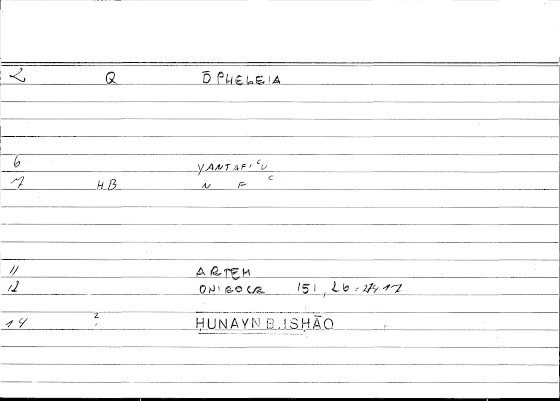 2 Q ŌPHELEIA
6 YANTAFIʿU
7 HB N F ʿ
11 ARTEM
12 ONIROCR 151, 26 = 274 17
14 2 ḤUNAYN B. ISḤĀQ